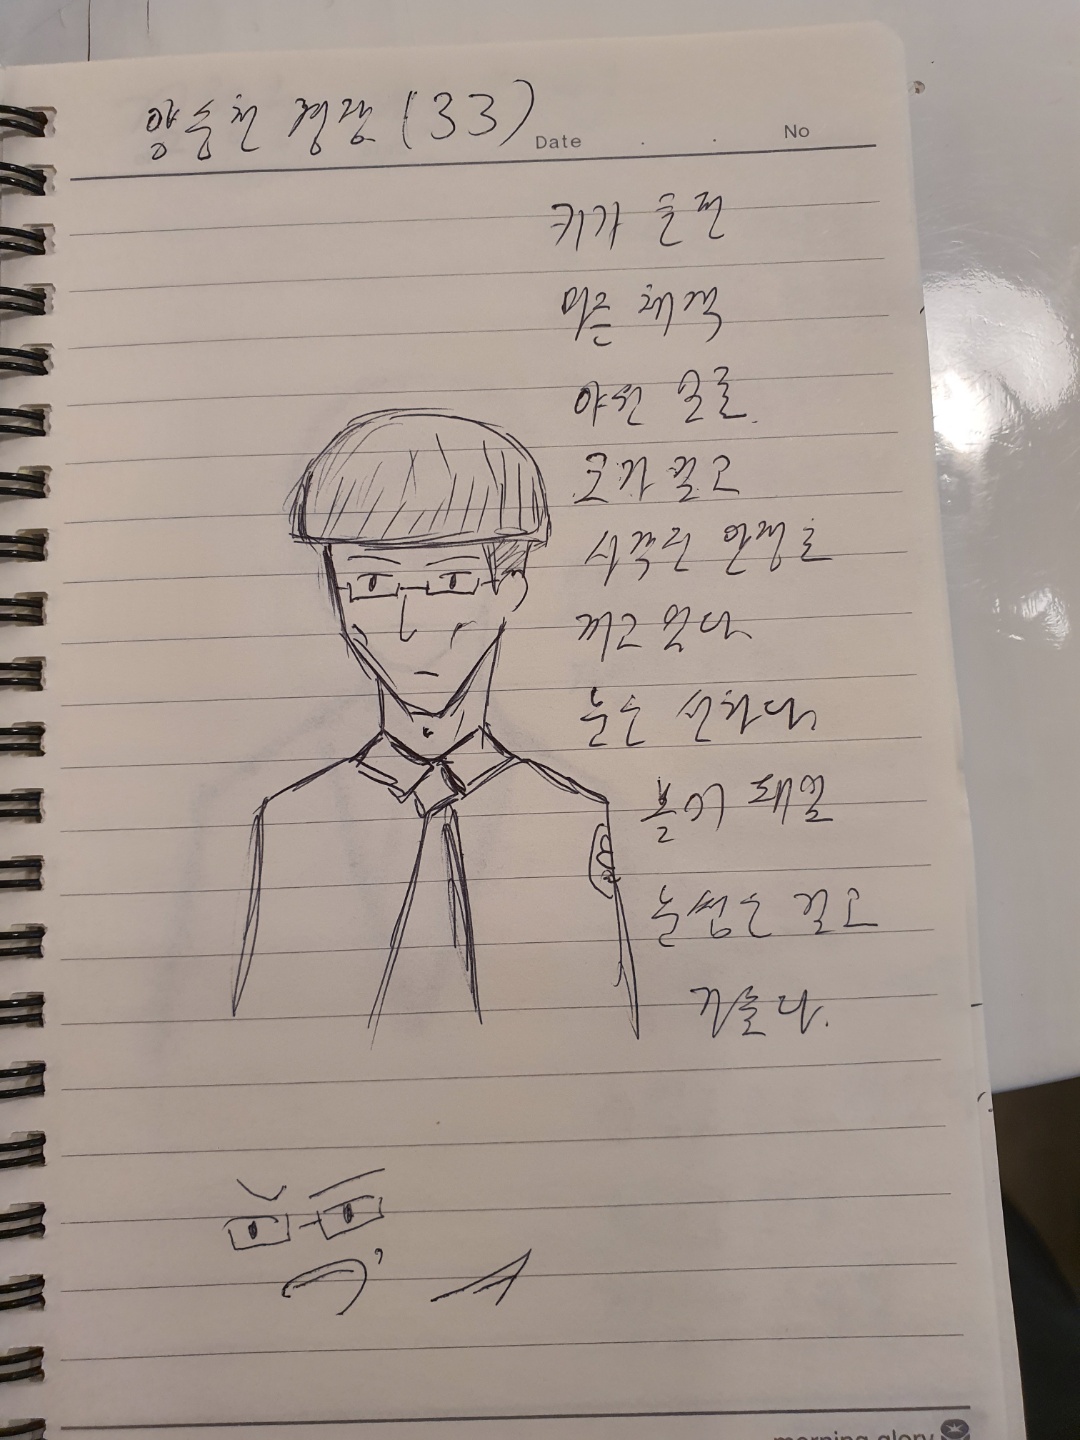 양승천 경장 (33)
Date . . No
키가 훌쩍
마른 체격
야윈 얼굴.
코가 길고
사각른 안경을
끼고 있다
눈은 선하다.
볼이 패일
눈썹은 길고
가늘다.
morning glory